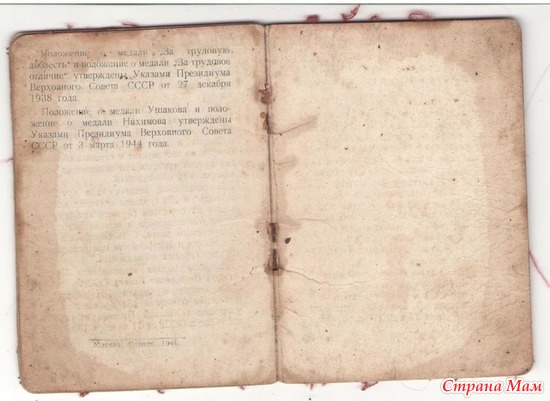 Положение о медали „За трудовую
доблесть" и положение о медали „За трудовое
отличие" утверждены Указами Президиума
Верховного Совета СССР от 27 декабря
1938 года.
Положение о медали Ушакова и поло-
жение о медали Нахимова утверждены
Указами Президиума Верховного Совета
СССР от 3 марта 1944 года.
1946.
Страна Мам